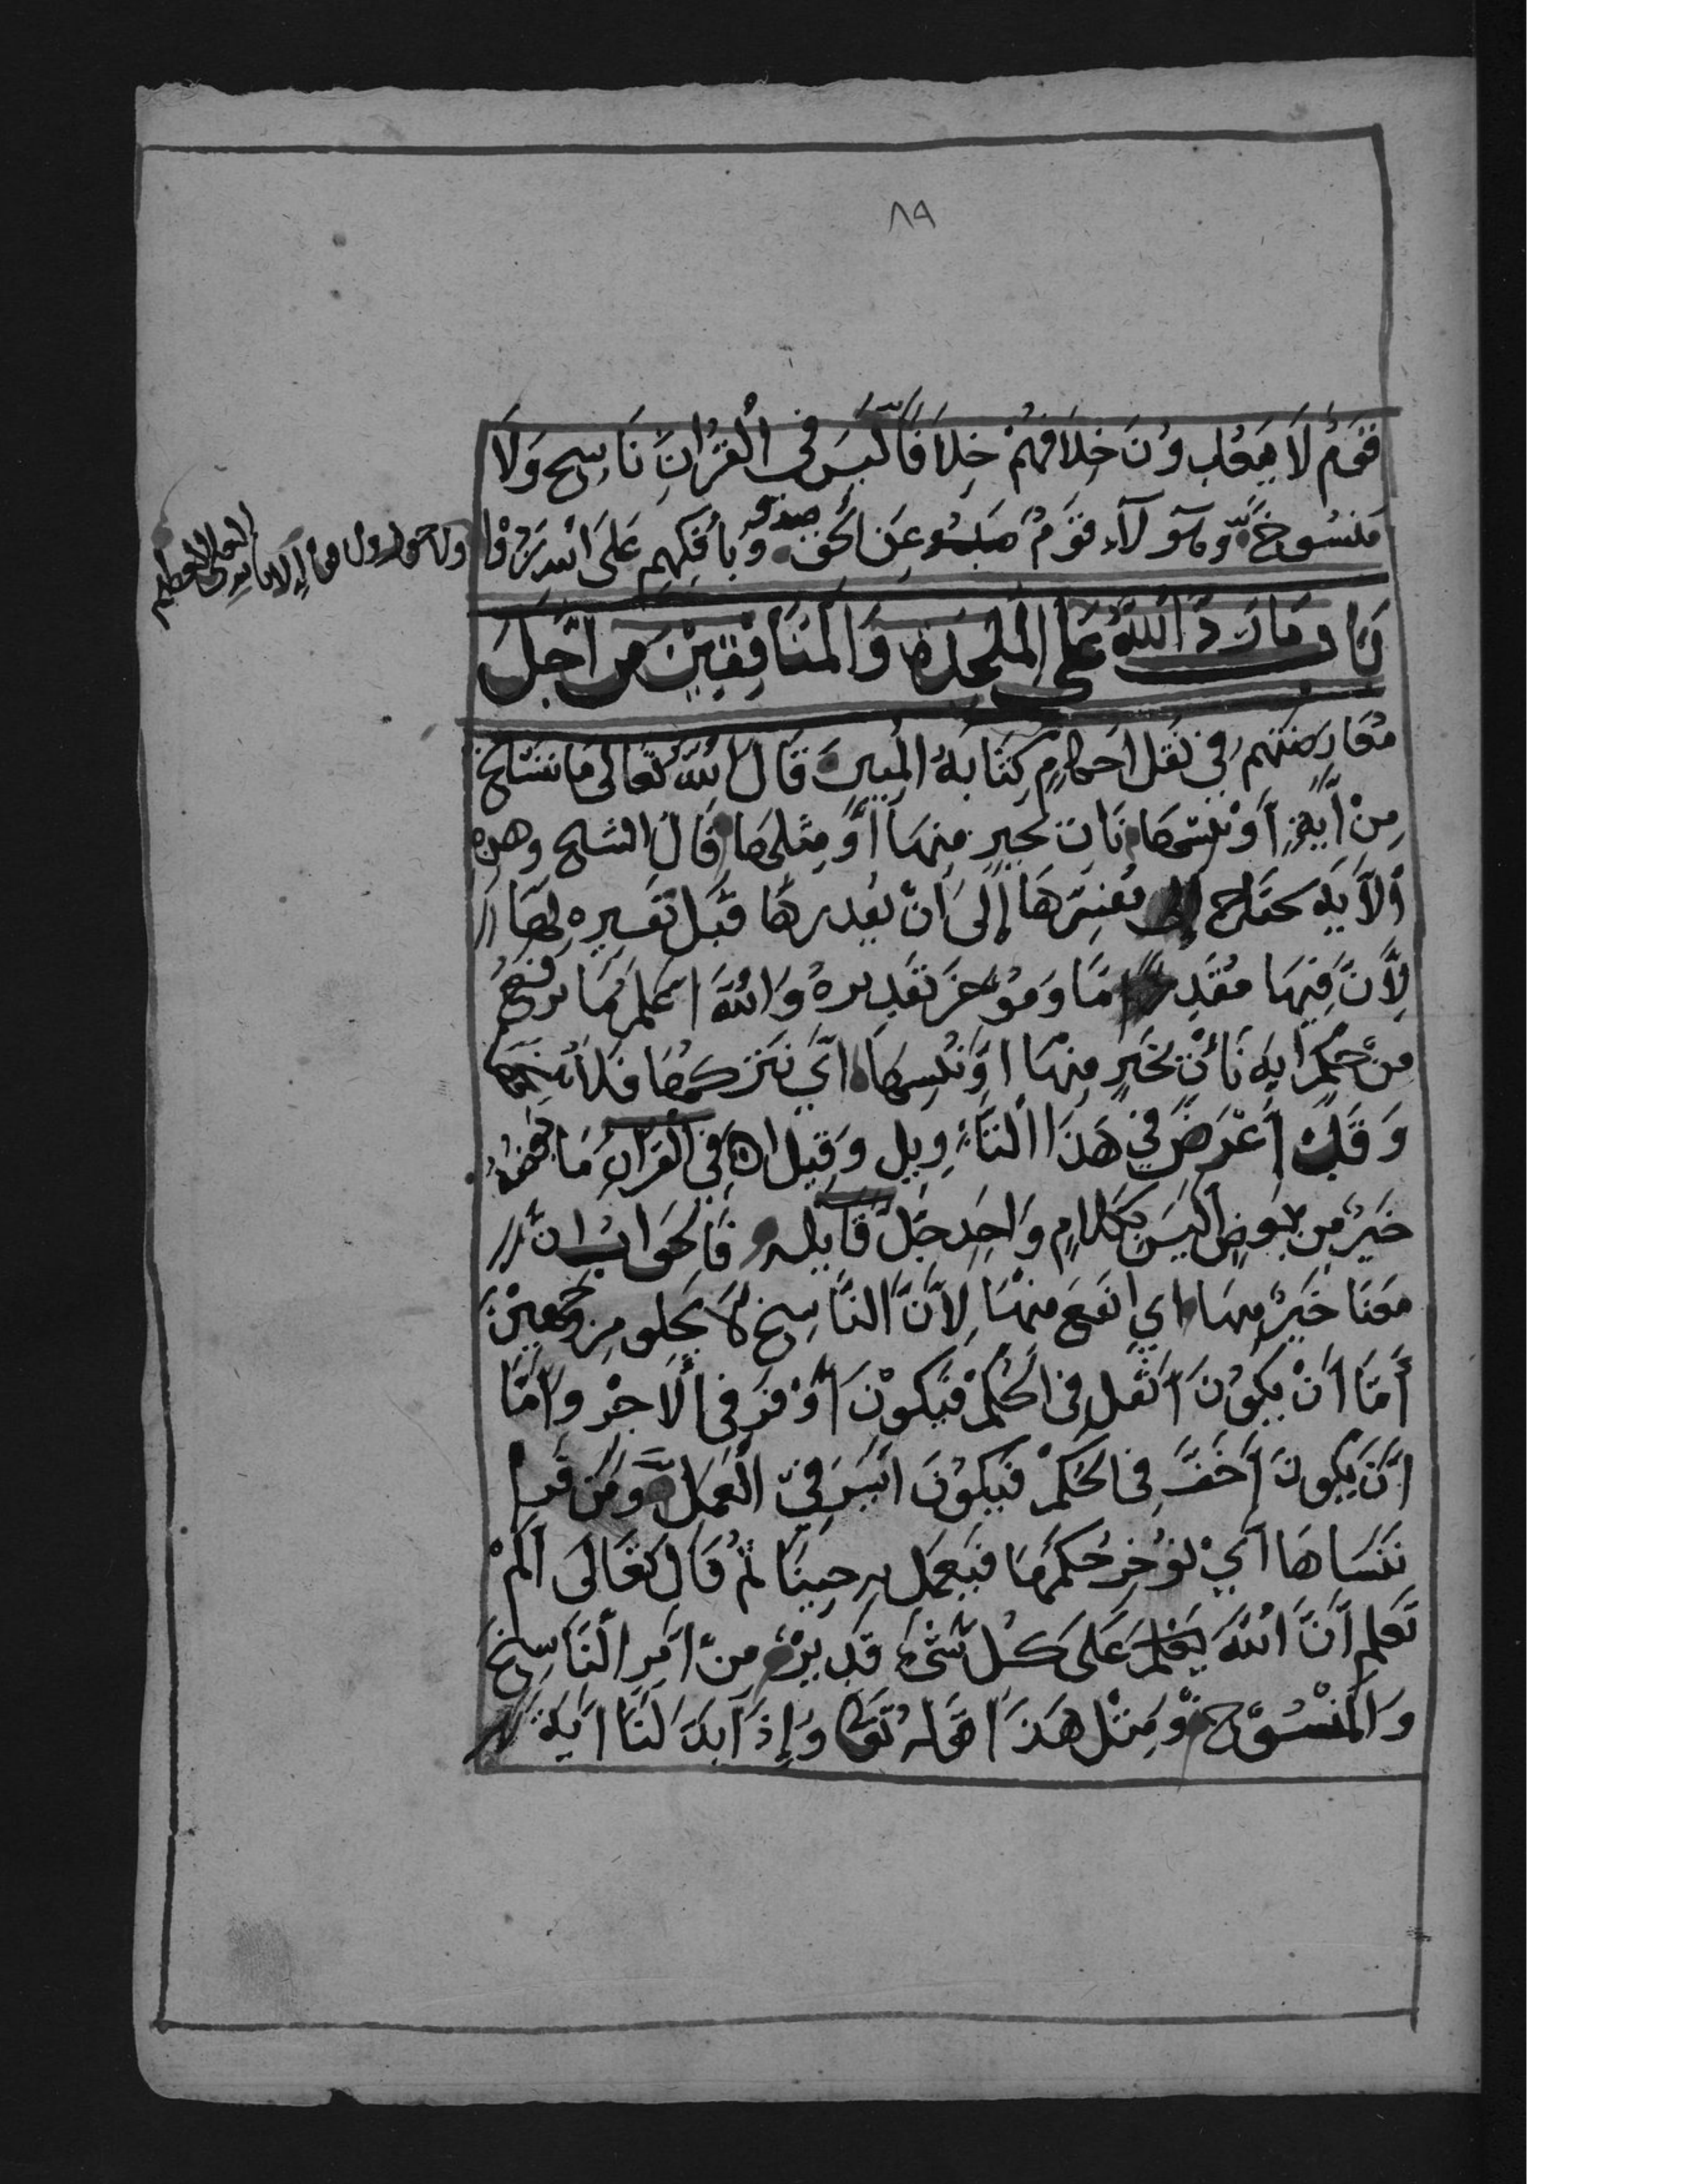 ٨٩
فقوم لا يعدون خلافهم خلافا ليس في القران ناسخ ولا
منسوخ وهؤلاء قوم عن الحق صدو وبافكهم على الله يردوا
ولا حول ولا قوة إلا بالله العلي العظيم
باب ما رد الله على الملحدة والمنافقين من اجل
معارضتهم في نقل احكام كتابه المبين قال الله تعالى ما ننسخ
من أية أو ننسها نات بخير منها أو مثلها قال الشيخ وهذه
الأية تحتاج إلى مفسرها إلى أن يقدرها قبل تفسيره لها
لأن فيها مقدما ومؤخر تقديره والله اعلم ما نرفع
من حكم اية نأت بخير منها او ننسها اي نتركها فلا ننسخها
وقد أعرض في هذا التأويل وقيل اه في القران ما بعضه
خير من بعض اليس بكلام واحد جل قايله فالجواب ان
معنا خير منها اي انفع منها لأن الناسخ لا يخلو من وجهين
أما أن يكون اثقل في الحكم فيكون أوفر في ألاجر وأما
أن يكون أخف في الحكم فيكون ايسر في العمل ومن قرا
ننساها أي نؤخر حكمها فيعمل به حينا ثم قال تعالى ألم
تعلم أن الله يعلم على كل شيء قدير من امر الناسخ
والمنسوخ ومثل هذا قوله تعا وإذا بدلنا اية